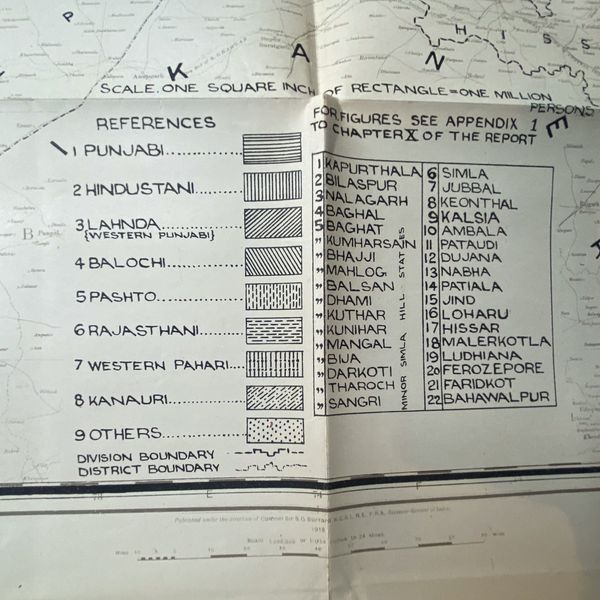 P
K
A
N
H
I
S
S
E
SCALE. ONE SQUARE INCH OF RECTANGLE=ONE MILLION
PERSONS
REFERENCES
1 PUNJABI
2 HINDUSTANI
3 LAHNDA
{WESTERN PUNJABI}
4 BALOCHI
5 PASHTO
6 RAJASTHANI
7 WESTERN PAHARI
8 KANAURI
9 OTHERS
DIVISION BOUNDARY
DISTRICT BOUNDARY
FOR FIGURES SEE APPENDIX 1
TO CHAPTER X OF THE REPORT
1 KAPURTHALA
2 BILASPUR
3 NALAGARH
4 BAGHAL
5 BAGHAT
" KUMHARSAIN
" BHAJJI
" MAHLOG
" BALSAN
" DHAMI
" KUTHAR
" KUNIHAR
" MANGAL
" BIJA
" DARKOTI
" THAROCH
" SANGRI
MINOR SIMLA HILL STATES
6 SIMLA
7 JUBBAL
8 KEONTHAL
9 KALSIA
10 AMBALA
11 PATAUDI
12 DUJANA
13 NABHA
14 PATIALA
15 JIND
16 LOHARU
17 HISSAR
18 MALERKOTLA
19 LUDHIANA
20 FEROZEPORE
21 FARIDKOT
22 BAHAWALPUR
Published under the direction of Colonel Sir S.G. Burrard